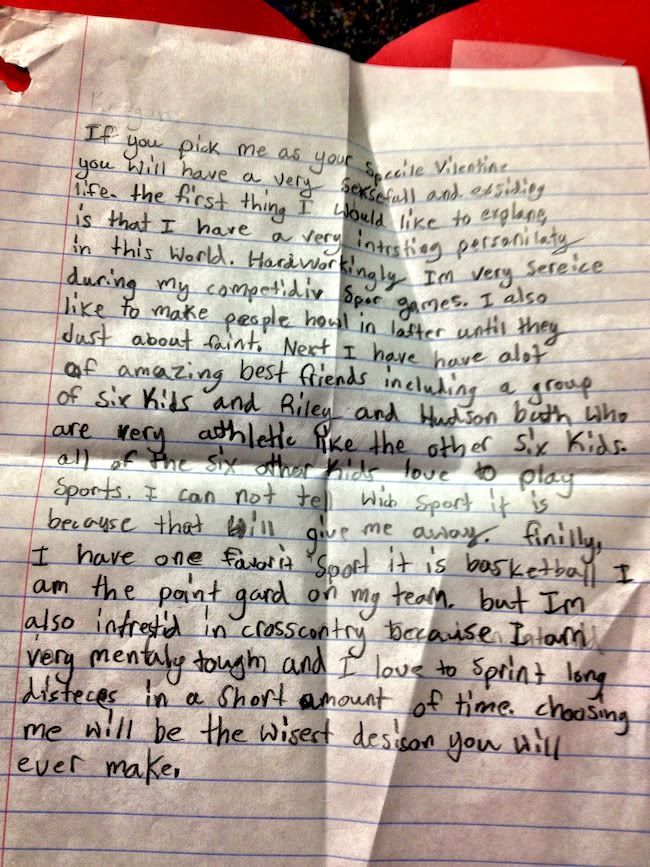 If you pick me as your Specile Vilentine
you will have a very sexsefull and exsiding
life. the first thing I would like to explane,
is that I have a very intrsting personilaty
in this world. Hardworkingly Im very sereice
during my competidiv Spor games. I also
like to make people howl in lafter until they
Just about faint. Next I have have alot
of amazing best friends including a group
of six kids and Riley and Hudson buth who
are very athletic like the other six kids.
all of the six other kids love to play
Sports. I can not tell wich sport it is
because that will give me away. finilly,
I have one favorit sport it is basketball I
am the point gard on my team. but Im
also intrest'd in crosscontry because I am
very mentaly tough and I love to sprint long
disteces in a short amount of time. choosing
me will be the wisest desison you will
ever make.